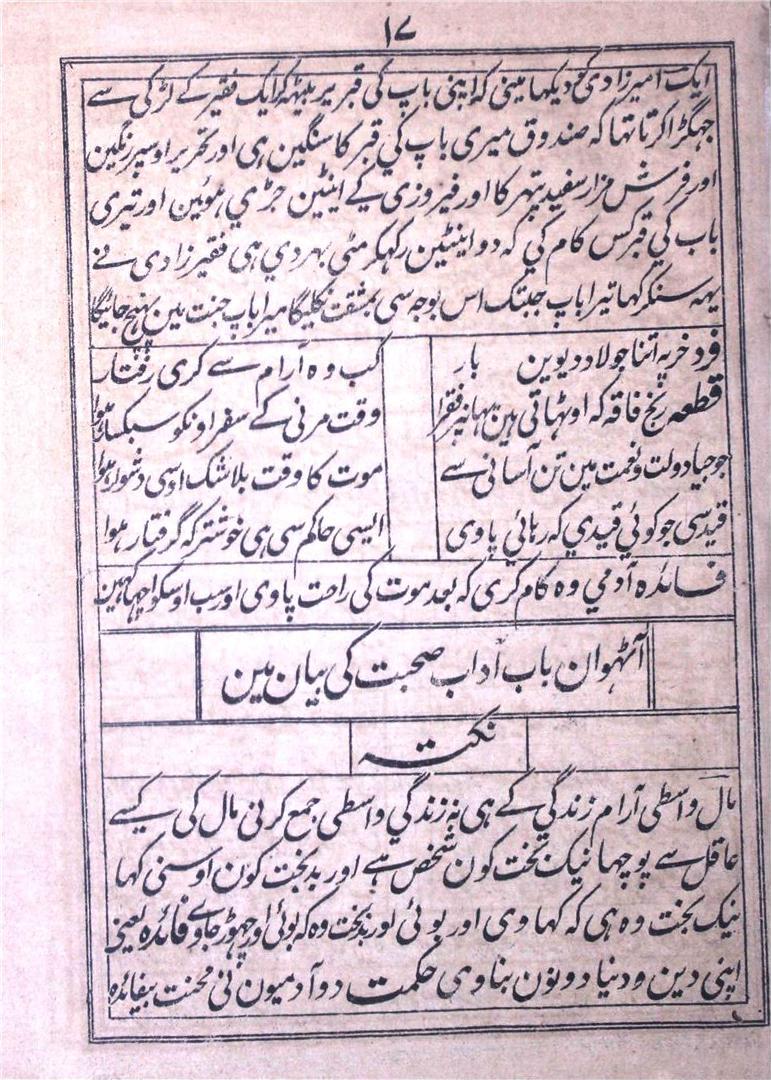 ۱۷
ایک امیرزادی کو دیکہا مینی کہ اپنی باپ کی قبر پر بیٹہکر ایک فقیر کے لڑکی سے
جہگڑا کرتا تہا کہ صندوق میری باپ کي قبر کا سنگین ہی اور تحریر اوسپر رنگین
اور فرش مزار سفید پتہر کا اور فیروزی کے اینٹین جڑي ہوئین اور تیری
باب کي قبر کس کام کي کہ دو اینٹین رکہکر مٹی بہر دي ہی فقیرزادی نے
یہہ سنکر کہا تیرا باپ جبتک اس بوجہ سی بمشقت نکلیگا میرا باپ جنت مین پہنچ جائیگا
فرد خر پہ اتنا جو لاد دیوین بار
کب وہ آرام سے کری رفتار
قطعہ رنج فاقہ کہ اوٹہاتی ہین یہان پر فقرا
وقت مرنی کے سفر اونکو سبکسار ہوا
جو جیا دولت و نعمت مین تن آسانی سے
موت کا وقت بلاشک اوسی دشوار ہوا
قید سی جو کوئي قیدي کہ رہائي پاوی
ایسی حاکم سی ہی خوشتر کہ گرفتار ہوا
فائدہ آدمي وہ کام کری کہ بعد موت کی راحت پاوی اور سب اوسکو اچہا کہین
آٹہوان باب آداب صحبت کی بیان مین
نکتہ
مال واسطی آرام زندگي کے ہی نہ زندگي واسطی جمع کرنی مال کی کیسے
عاقل سے پوچہا نیک بخت کون شخص ہے اور بدبخت کون اوسنی کہا
نیک بخت وہ ہی کہ کہاوی اور بوئی اور بدبخت وہ کہ بوئی اور چہوڑ جاوے فائدہ یعنی
اپنی دین و دنیا دونون بناوی حکمت دو آدمیون نی محنت بیفائدہ